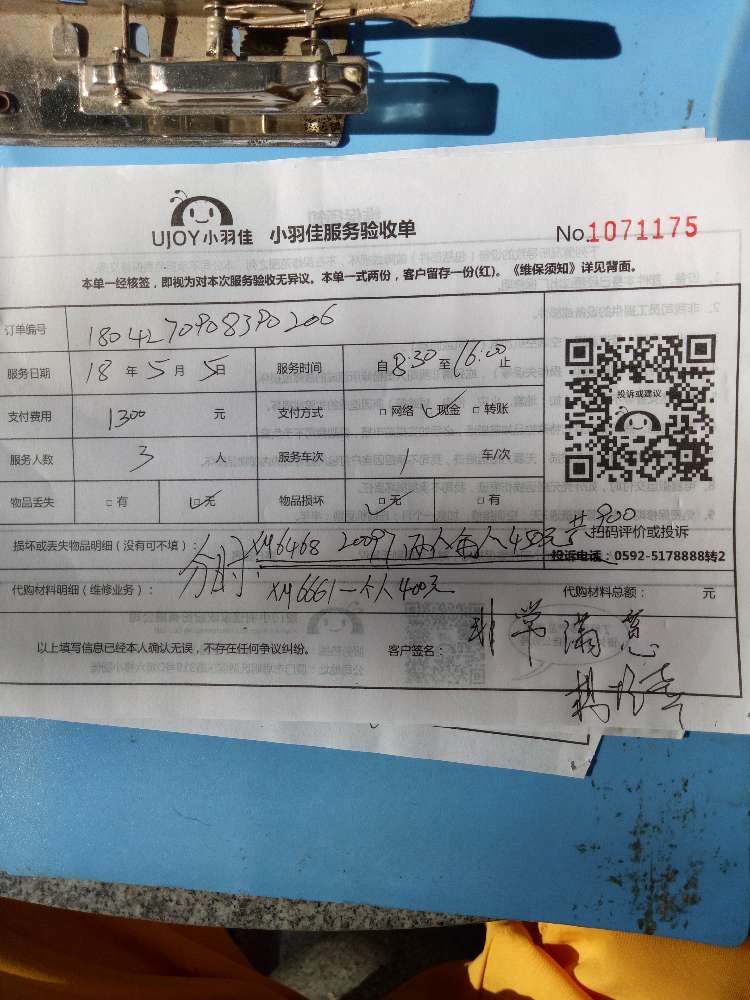 UJOY小羽佳 小羽佳服务验收单 No.1071175
本单一经核签，即视为对本次服务验收无异议。本单一式两份，客户留存一份(红)。《维保须知》详见背面。
订单编号 1804270908390206
服务日期 18 年 5 月 5 日 服务时间 自 8:30 至 16:00 止
投诉或建议
支付费用 1300 元 支付方式 □ 网络 ✓ 现金 □ 转账
服务人数 3 人 服务车次 1 车/次
物品丢失 □ 有 ✓ 无 物品损坏 ✓ 无 □ 有
共900
扫码评价或投诉
损坏或丢失物品明细（没有可不填）： XM6468 20097 两人每人450元
投诉电话：0592-5178888转2
分时：
代购材料明细（维修业务）： XM6661一个人400元 代购材料总额： 元
以上填写信息已经本人确认无误，不存在任何争议纠纷。 客户签名： 非常满意